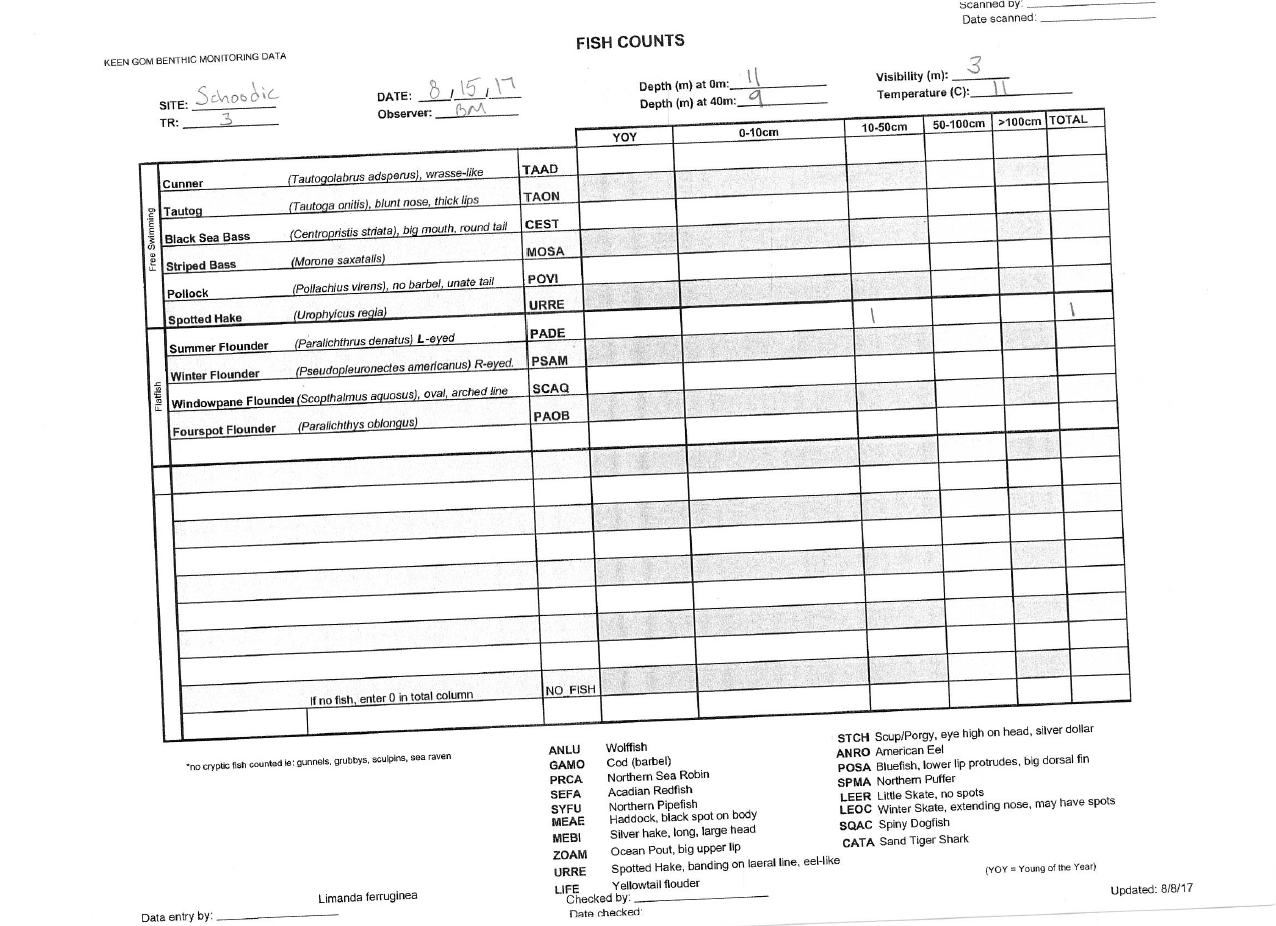 Scanned by:
Date scanned:
FISH COUNTS
KEEN GOM BENTHIC MONITORING DATA
SITE: Schoodic
TR: 3
DATE: 8/15/17
Observer: BM
Depth (m) at 0m: 11
Depth (m) at 40m: 9
Visibility (m): 3
Temperature (C): 11
YOY 0-10cm 10-50cm 50-100cm >100cm TOTAL
Free Swimming
Cunner (Tautogolabrus adsperus), wrasse-like TAAD
Tautog (Tautoga onitis), blunt nose, thick lips TAON
Black Sea Bass (Centropristis striata), big mouth, round tail CEST
Striped Bass (Morone saxatalis) MOSA
Pollock (Pollachius virens), no barbel, unate tail POVI
Spotted Hake (Urophyicus regia) URRE
Flatfish
Summer Flounder (Paralichthrus denatus) L-eyed PADE 1 1
Winter Flounder (Pseudopleuronectes americanus) R-eyed. PSAM
Windowpane Flounder (Scopthalmus aquosus), oval, arched line SCAQ
Fourspot Flounder (Paralichthys oblongus) PAOB
If no fish, enter 0 in total column NO FISH
*no cryptic fish counted ie: gunnels, grubbys, sculpins, sea raven
ANLU Wolffish
GAMO Cod (barbel)
PRCA Northern Sea Robin
SEFA Acadian Redfish
SYFU Northern Pipefish
MEAE Haddock, black spot on body
MEBI Silver hake, long, large head
ZOAM Ocean Pout, big upper lip
URRE Spotted Hake, banding on laeral line, eel-like
LIFE Yellowtail flouder
STCH Scup/Porgy, eye high on head, silver dollar
ANRO American Eel
POSA Bluefish, lower lip protrudes, big dorsal fin
SPMA Northern Puffer
LEER Little Skate, no spots
LEOC Winter Skate, extending nose, may have spots
SQAC Spiny Dogfish
CATA Sand Tiger Shark
(YOY = Young of the Year)
Limanda ferruginea
Data entry by:
Checked by:
Date checked:
Updated: 8/8/17